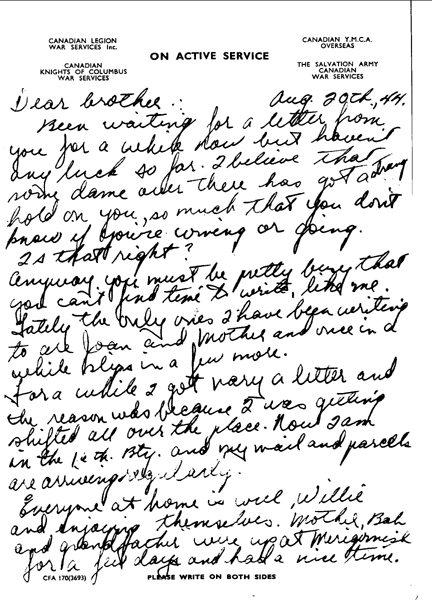 CANADIAN LEGION
WAR SERVICES Inc.
CANADIAN
KNIGHTS OF COLUMBUS
WAR SERVICES
ON ACTIVE SERVICE
CANADIAN Y.M.C.A.
OVERSEAS
THE SALVATION ARMY
CANADIAN
WAR SERVICES
Dear brother.: Aug. 20th, 44.
Been waiting for a letter from
you for a while now but haven't
any luck so far. I believe that
some dame over there has got a strong
hold on you, so much that you don't
know if you're coming or going.
Is that right?
Anyway, you must be pretty busy that
you can't find time to write, like me.
Lately the only ones I have been writing
to are Joan and Mother and once in a
while slips in a few more.
For a while I got nary a letter and
the reason was because I was getting
shifted all over the place. Now I am
in the Bty. and my mail and parcels
are arriving regularly.
Everyone at home is well, Willie
and enjoying themselves. Mother, Bab
and grandfather were up at
for a few days and had a nice time.
CFA 170(3693) PLEASE WRITE ON BOTH SIDES